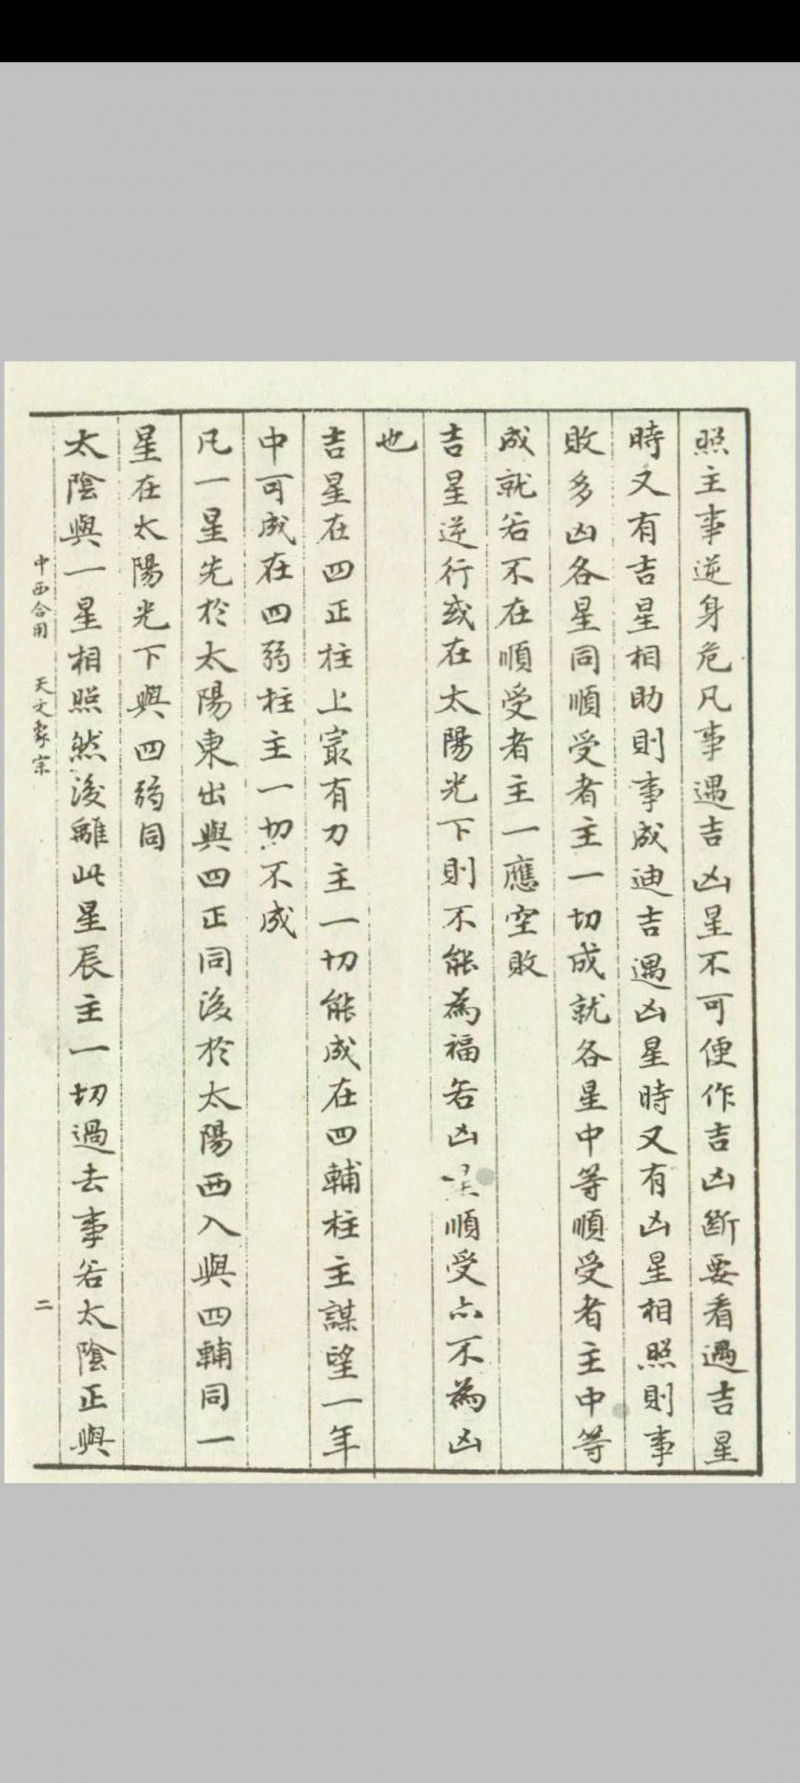 照主事逆身危凡事遇吉凶星不可便作吉凶斷要看遇吉星
時又有吉星相助則事成迪吉遇凶星時又有凶星相照則事
敗多凶各星同順受者主一切成就各星中等順受者主中等
成就若不在順受者主一應空敗
吉星逆行或在太陽光下則不能為福若凶星順受亦不為凶
也
吉星在四正柱上㝡有力主一切能成在四輔柱主謀望一年
中可成在四弱柱主一切不成
凡一星先於太陽東出與四正同後於太陽西入與四輔同一
星在太陽光下與四弱同
太陰與一星相照然後離此星辰主一切過去事若太陰正與
中西合用 天文象宗 二